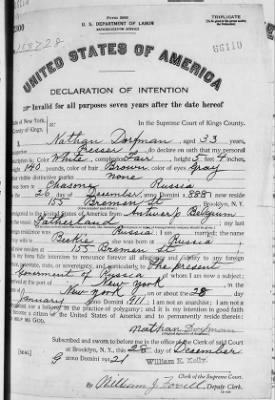 Form 2203
U. S. DEPARTMENT OF LABOR
NATURALIZATION SERVICE
TRIPLICATE
UNITED STATES OF AMERICA
DECLARATION OF INTENTION
Invalid for all purposes seven years after the date hereof
State of New York,
County of Kings,
In the Supreme Court of Kings County.
I, Nathan Dorfman, aged 33 years,
occupation Presser, do declare on oath that my personal
description is: Color White, complexion Fair, height 5 feet 4 inches,
weight 140 pounds, color of hair Brown, color of eyes Gray
other visible distinctive marks none
I was born in Russia
on the 28 day of December, anno Domini 1888; I now reside
at 155 Bremen St, Brooklyn, N. Y.
I emigrated to the United States of America from Antwerp Belgium
on the vessel; my last
foreign residence was Russia; I am married; the name
of my wife is; she was born at Russia
and now resides at 155 Bremen St
It is my bona fide intention to renounce forever all allegiance and fidelity to any foreign
prince, potentate, state, or sovereignty, and particularly to The present
Government of Russia, of whom I am now a subject;
I arrived at the port of New York, in the
State of New York, on or about the 28 day
of January, anno Domini 1911; I am not an anarchist; I am not a
polygamist nor a believer in the practice of polygamy; and it is my intention in good faith
to become a citizen of the United States of America and to permanently reside therein:
SO HELP ME GOD.
Nathan Dorfman
Subscribed and sworn to before me in the office of the Clerk of said Court
at Brooklyn, N. Y., this 28 day of December
anno Domini 1921
[SEAL]
William E. Kelly
Clerk of the Supreme Court.
By William J. Lovell, Deputy Clerk.